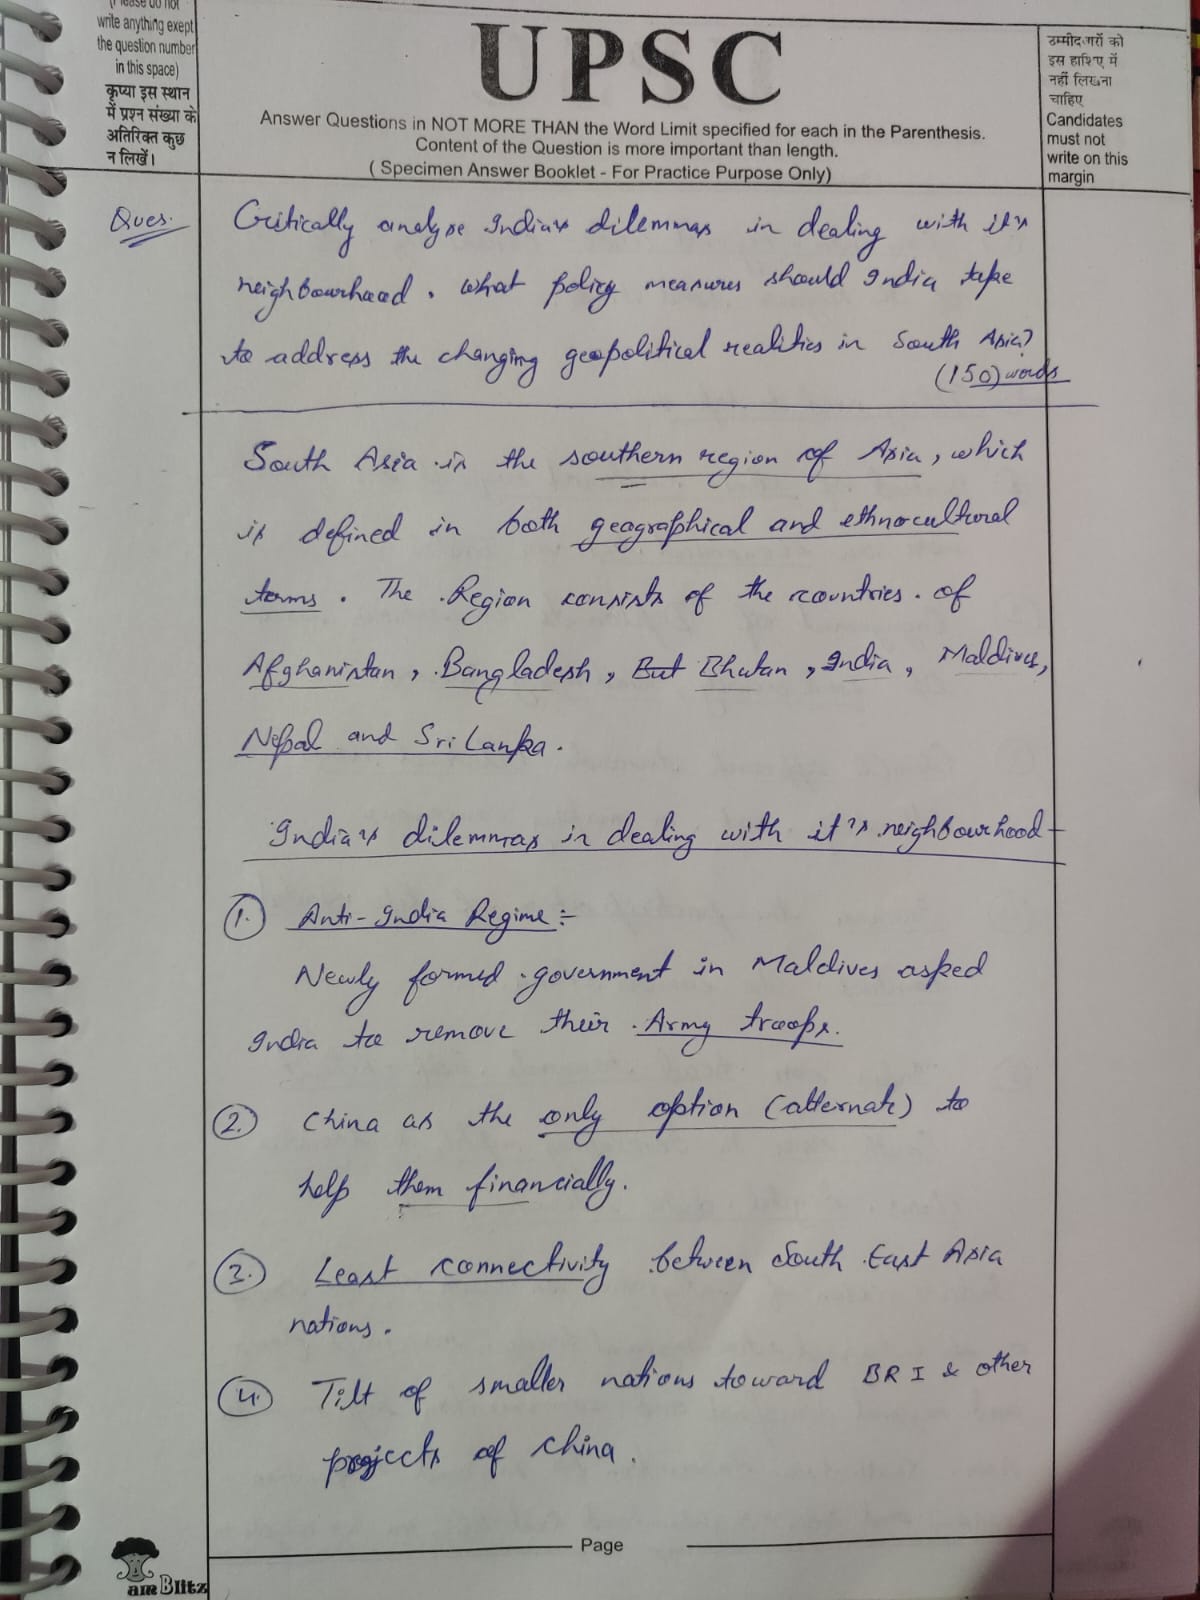 (Please do not
write anything exept
the question number
in this space)
कृप्या इस स्थान
में प्रश्न संख्या के
अतिरिक्त कुछ
न लिखें।
UPSC
Answer Questions in NOT MORE THAN the Word Limit specified for each in the Parenthesis.
Content of the Question is more important than length.
( Specimen Answer Booklet - For Practice Purpose Only)
उम्मीदवारों को
इस हाशिए में
नहीं लिखना
चाहिए
Candidates
must not
write on this
margin
Ques.
Critically analyse India's dilemmas in dealing with it's
neighbourhood. what policy measures should India take
to address the changing geopolitical realities in South Asia?
(150) words
South Asia is the southern region of Asia, which
is defined in both geographical and ethnocultural
terms. The Region consists of the countries of
Afghanistan, Bangladesh, But Bhutan, India, Maldives,
Nepal and Sri Lanka.
India's dilemmas in dealing with it's neighbourhood-
1. Anti-India Regime:-
Newly formed government in Maldives asked
India to remove their Army troops.
2. China as the only option (alternate) to
help them financially.
3. Least connectivity between South East Asia
nations.
4. Tilt of smaller nations toward BRI & other
projects of china.
Page
am Blitz